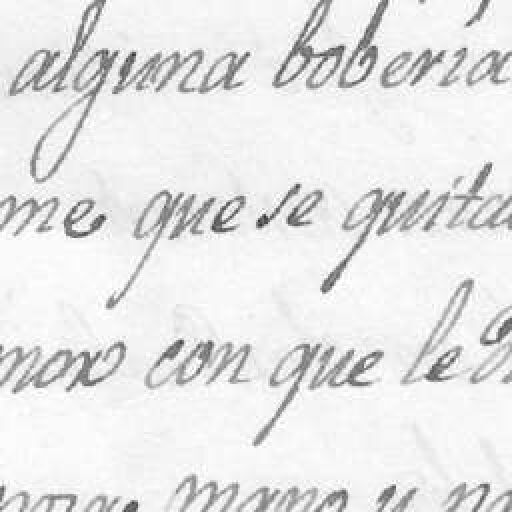 alguna boberia
me que se quita
mor con que le
mano y